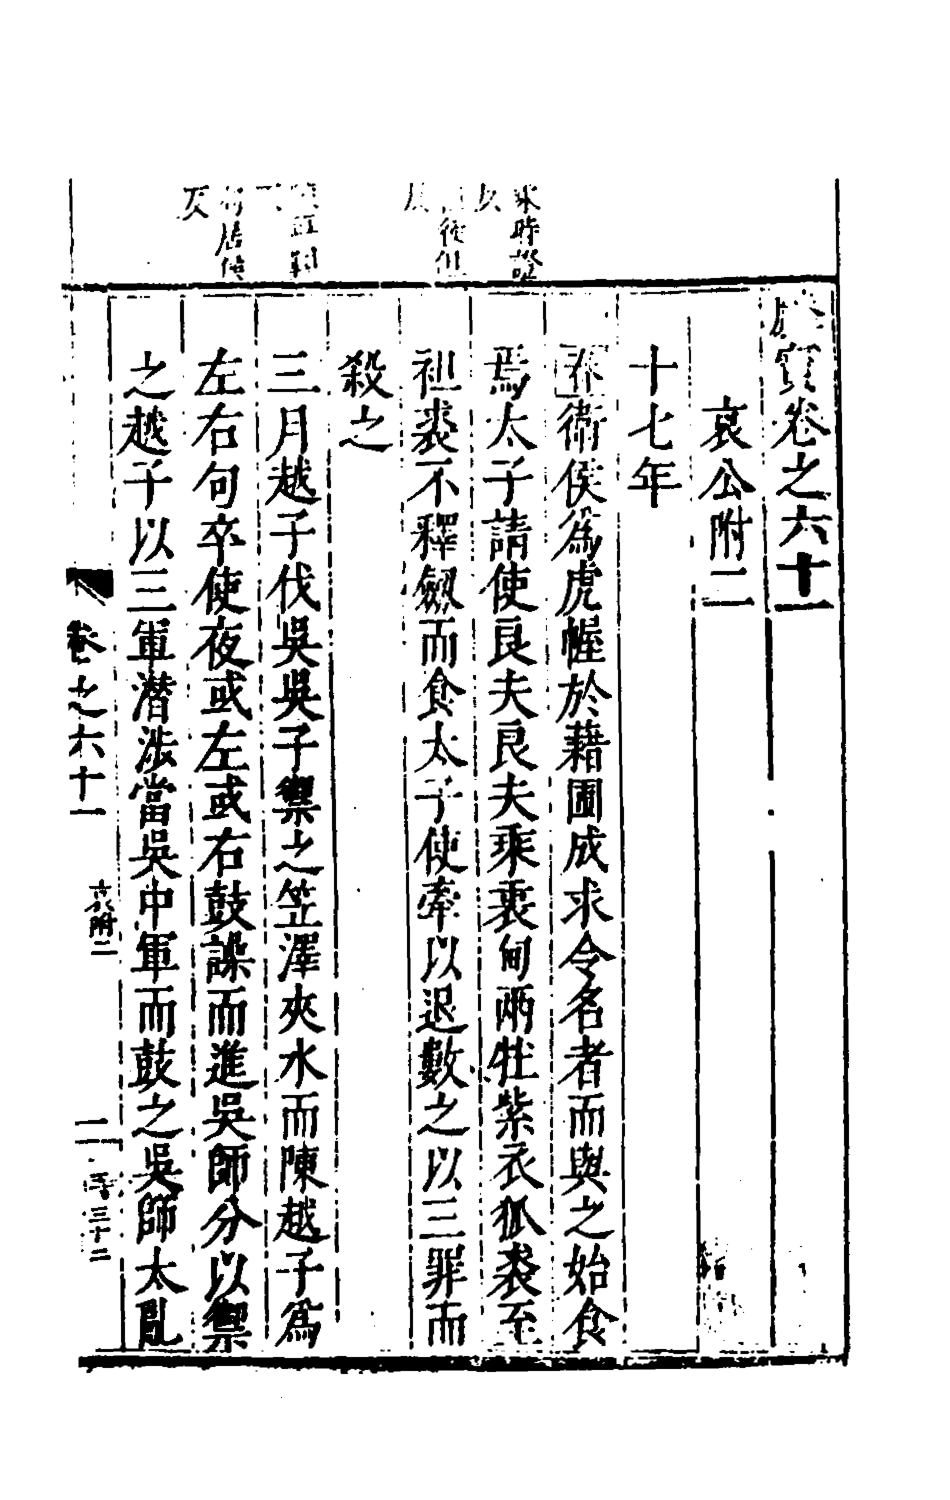 實卷之六十一
哀公附二
十七年
春衛侯爲虎幄於藉圃成求令名者而與之始食
焉太子請使良夫良夫乘衷甸兩牡紫衣狐裘至
袒裘不釋劔而食太子使牽以退數之以三罪而
殺之
三月越子伐吳吳子禦之笠澤夾水而陳越子爲
左右句卒使夜或左或右鼓譟而進吳師分以禦
之越子以三軍潛涉當吳中軍而鼓之吳師太亂
卷之六十一
哀附二
三十二